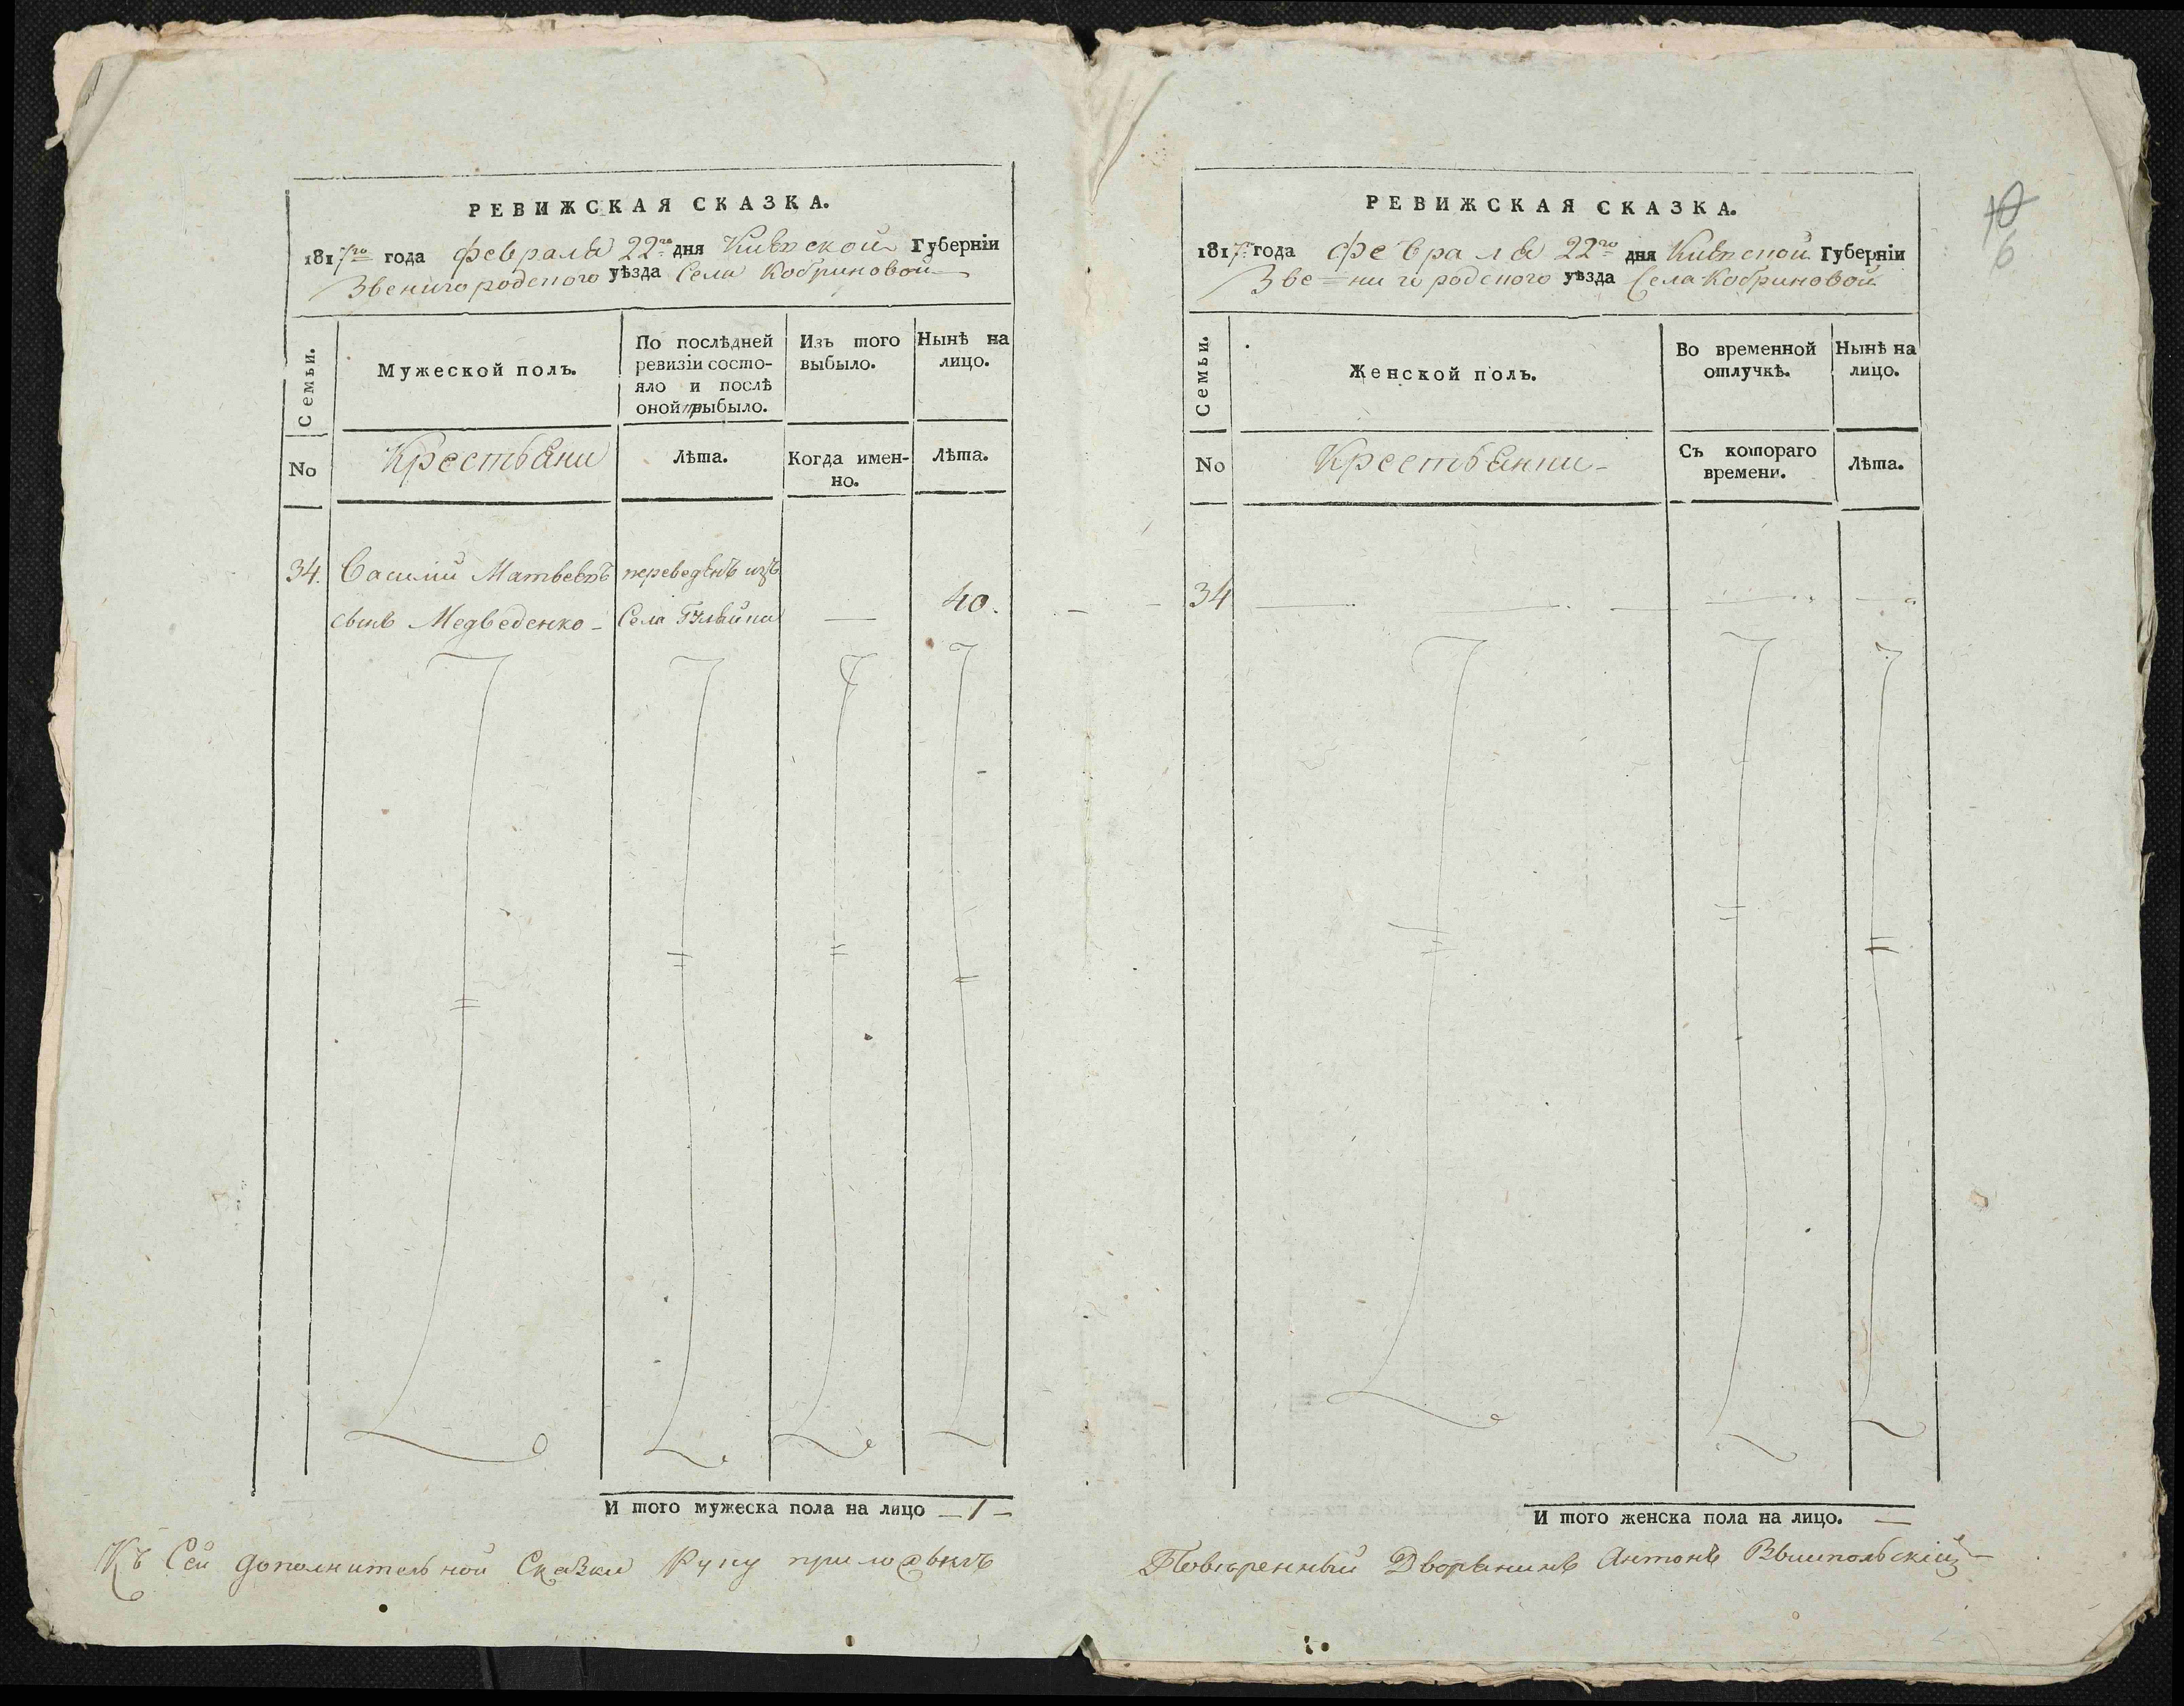 РЕВИЖСКАЯ СКАЗКА.
1817го года февраля 22го дня Кіевской Губерніи
Звенигородского уѣзда Села Кобриновой
Семьи.
Мужеской полъ.
По послѣдней ревизіи состояло и послѣ оной прибыло.
Изъ того выбыло.
Нынѣ на лицо.
No
Крестьяни
Лѣта.
Когда именно.
Лѣта.
34. Василій Матвеевъ переведенъ изъ
сынъ Медведенко - Села — 40.
И того мужеска пола на лицо — 1 —
Къ Сей дополнительной Сказки Руку приложилъ
РЕВИЖСКАЯ СКАЗКА.
1817го года февраля 22го дня Кіевской Губерніи
Звенигородского уѣзда Села Кобриновой
Семьи.
Женской полъ.
Во временной отлучкѣ.
Нынѣ на лицо.
No
Крестьянки
Съ котораго времени.
Лѣта.
34
И того женска пола на лицо. —
Повѣренный Дворянинъ Антонъ
10
6